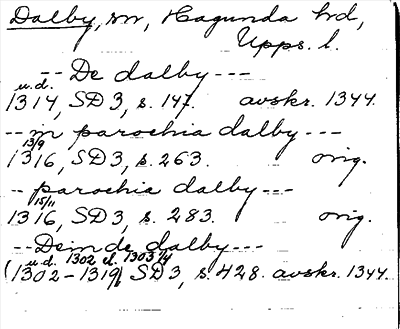 Dalby, sn, Hagunda hd,
Upps. l.
-- De dalby ---
u.d.
1314, SD 3, s. 147. avskr. 1344.
-- in parochia dalby ---
13/9
1316, SD 3, s. 263. orig.
-- parochia dalby ---
15/11
1316, SD 3, s. 283. orig.
-- Dein de dalby ---
u.d. 1302 el. 1303
(1302-1319) SD 3, s. 428. avskr. 1344.